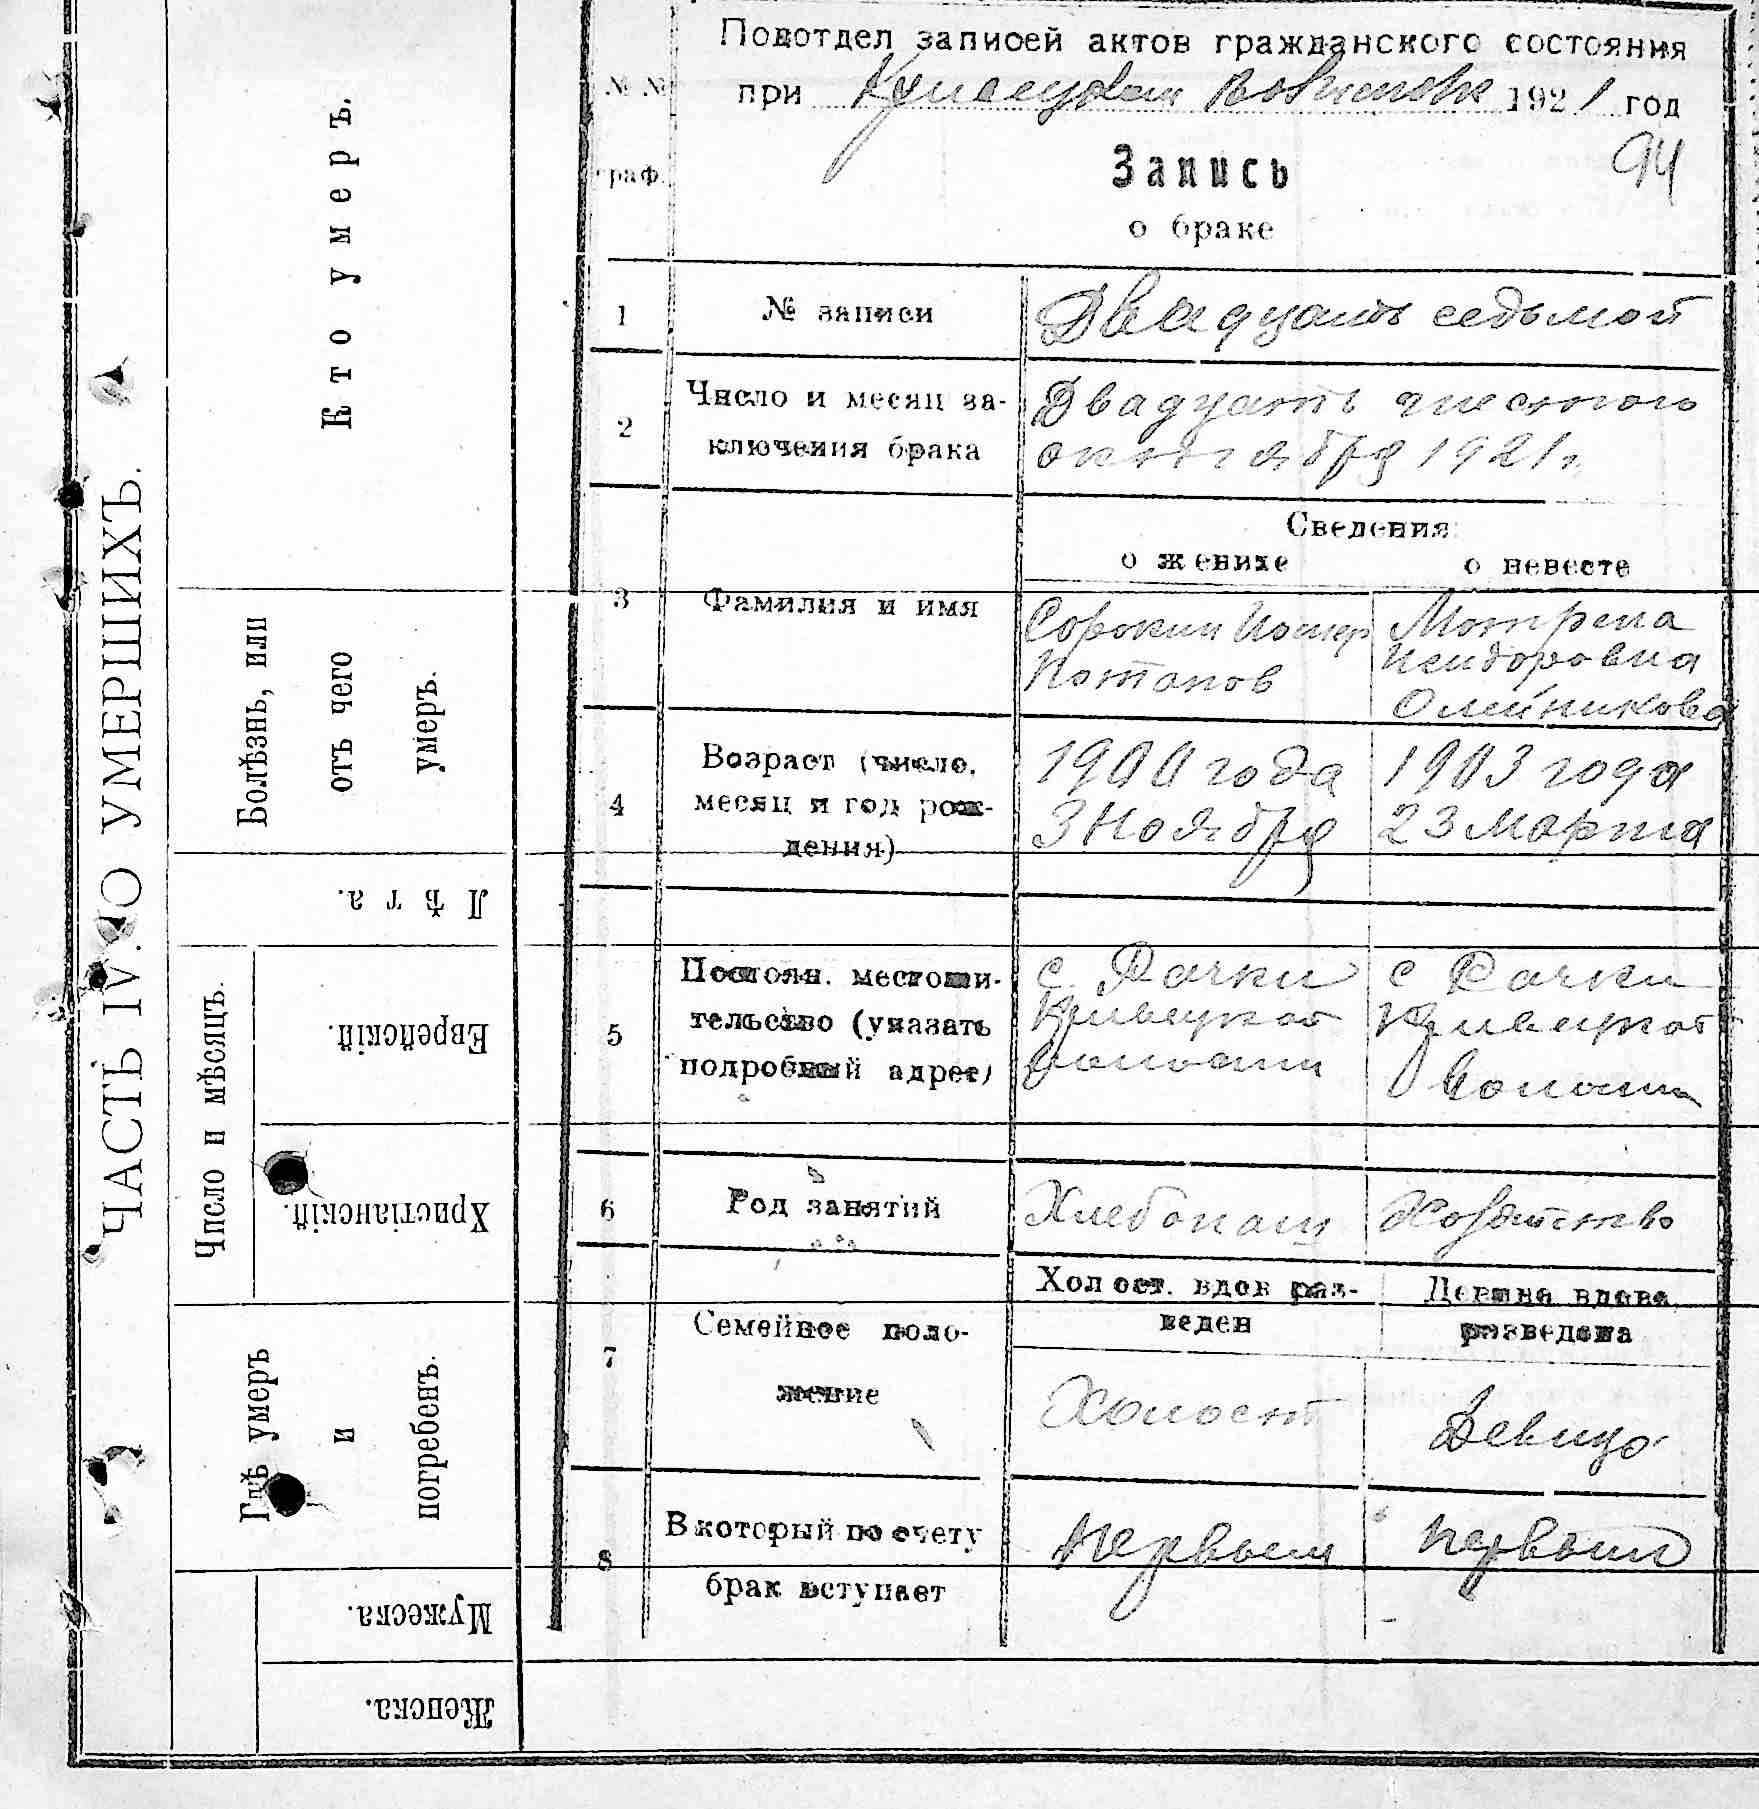 ЧАСТЬ IV. О УМЕРШИХЪ.
Кто умеръ.
Болѣзнь, или
отъ чего
умеръ.
Лѣта.
Число и мѣсяцъ.
Еврейскій.
Христіанскій.
Гдѣ умеръ
и
погребенъ.
Мужеска.
Женска.
№ №
граф.
Подотдел записей актов гражданского состояния
при 1921 год
94
Запись
о браке
1 № записи Двадцать седьмой
2 Число и месяц за-
ключения брака
Двадцать шестого
октября 1921 г.
Сведения:
о женихе о невесте
3 Фамилия и имя
Сорокин
Потапов
Мотрена
Исидоровна
Олейникова
4 Возраст (число,
месяц и год рож-
дения)
1900 года
3 Ноября
1903 года
23 Марта
5 Постоян. местожи-
тельство (указать
подробный адрес)
с. Рачки
волости
с Рачки
волости
6 Род занятий Хлебопаш Хозяйство
7 Семейное поло-
жение
Холост. вдов раз-
веден
Девица вдова
разведена
Холост
Девица
8 В который по счету
брак вступает
первым первым